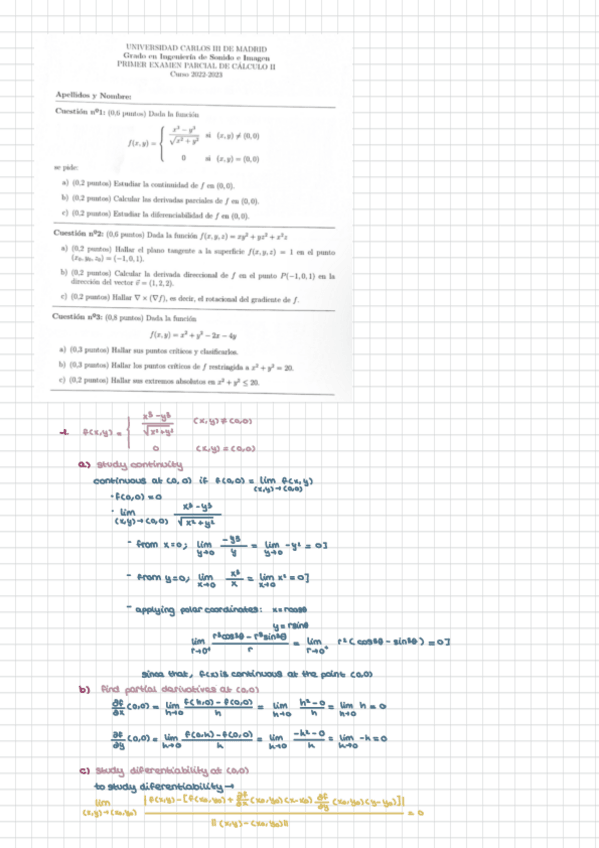 UNIVERSIDAD CARLOS III DE MADRID
Grado en Ingeniería de Sonido e Imagen
PRIMER EXAMEN PARCIAL DE CÁLCULO II
Curso 2022-2023
Apellidos y Nombre:
Cuestión nº1: (0,6 puntos) Dada la función
f(x, y) = { (x³ − y³)/√(x² + y²) si (x, y) ≠ (0, 0)
0 si (x, y) = (0, 0)
se pide:
a) (0,2 puntos) Estudiar la continuidad de f en (0, 0).
b) (0,2 puntos) Calcular las derivadas parciales de f en (0, 0).
c) (0,2 puntos) Estudiar la diferenciabilidad de f en (0, 0).
Cuestión nº2: (0,6 puntos) Dada la función f(x, y, z) = xy² + yz² + x²z
a) (0,2 puntos) Hallar el plano tangente a la superficie f(x, y, z) = 1 en el punto
(x₀, y₀, z₀) = (−1, 0, 1).
b) (0,2 puntos) Calcular la derivada direccional de f en el punto P(−1, 0, 1) en la
dirección del vector v⃗ = (1, 2, 2).
c) (0,2 puntos) Hallar ∇ × (∇f), es decir, el rotacional del gradiente de f.
Cuestión nº3: (0,8 puntos) Dada la función
f(x, y) = x² + y² − 2x − 4y
a) (0,3 puntos) Hallar sus puntos críticos y clasificarlos.
b) (0,3 puntos) Hallar los puntos críticos de f restringida a x² + y² = 20.
c) (0,2 puntos) Hallar sus extremos absolutos en x² + y² ≤ 20.
1. f(x,y) = { (x³−y³)/√(x²+y²) (x,y) ≠ (0,0)
0 (x,y) = (0,0)
a) study continuity
continuous at (0,0) if f(0,0) = lim (x,y)→(0,0) f(x,y)
· f(0,0) = 0
· lim (x,y)→(0,0) (x³−y³)/√(x²+y²)
- from x=0; lim y→0 −y³/y = lim y→0 −y² = 0]
- from y=0; lim x→0 x³/x = lim x→0 x² = 0]
- applying polar coordinates: x=rcosθ
y=rsinθ
lim r→0⁺ (r³cos³θ − r³sin³θ)/r = lim r→0⁺ r²(cos³θ − sin³θ) = 0]
since that, f(x) is continuous at the point (0,0)
b) find partial derivatives at (0,0)
∂f/∂x (0,0) = lim h→0 (f(h,0) − f(0,0))/h = lim h→0 (h²−0)/h = lim h→0 h = 0
∂f/∂y (0,0) = lim h→0 (f(0,h) − f(0,0))/h = lim h→0 (−h²−0)/h = lim h→0 −h = 0
c) study diferentiability at (0,0)
to study diferentiability →
lim (x,y)→(x₀,y₀) |f(x,y) − [f(x₀,y₀) + ∂f/∂x (x₀,y₀)(x−x₀) ∂f/∂y (x₀,y₀)(y−y₀)]| / ‖(x,y) − (x₀,y₀)‖ = 0